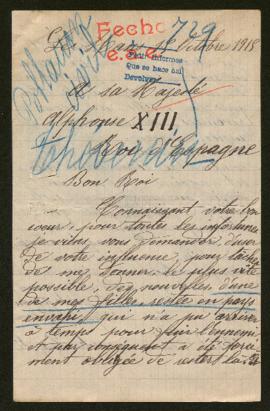 Fecho 729
Le Mans, 1er Octobre 1918
e.s.d.
Pedir informes
Que se hace así
Devolver
Población
civil
A sa Majesté
Alphonse XIII
Roi d'Espagne
Bon Roi
Connaissant votre bon
coeur, pour toutes les infortunes
je viens vous demander d'user
de votre influence, pour tâcher
de me donner le plus vite
possible, des nouvelles, d'une
de mes filles, restée en pays
envahi, qui n'a pu arriver
à temps pour fuir l'ennemi
et par conséquent a été forcé
ment obligée de rester là